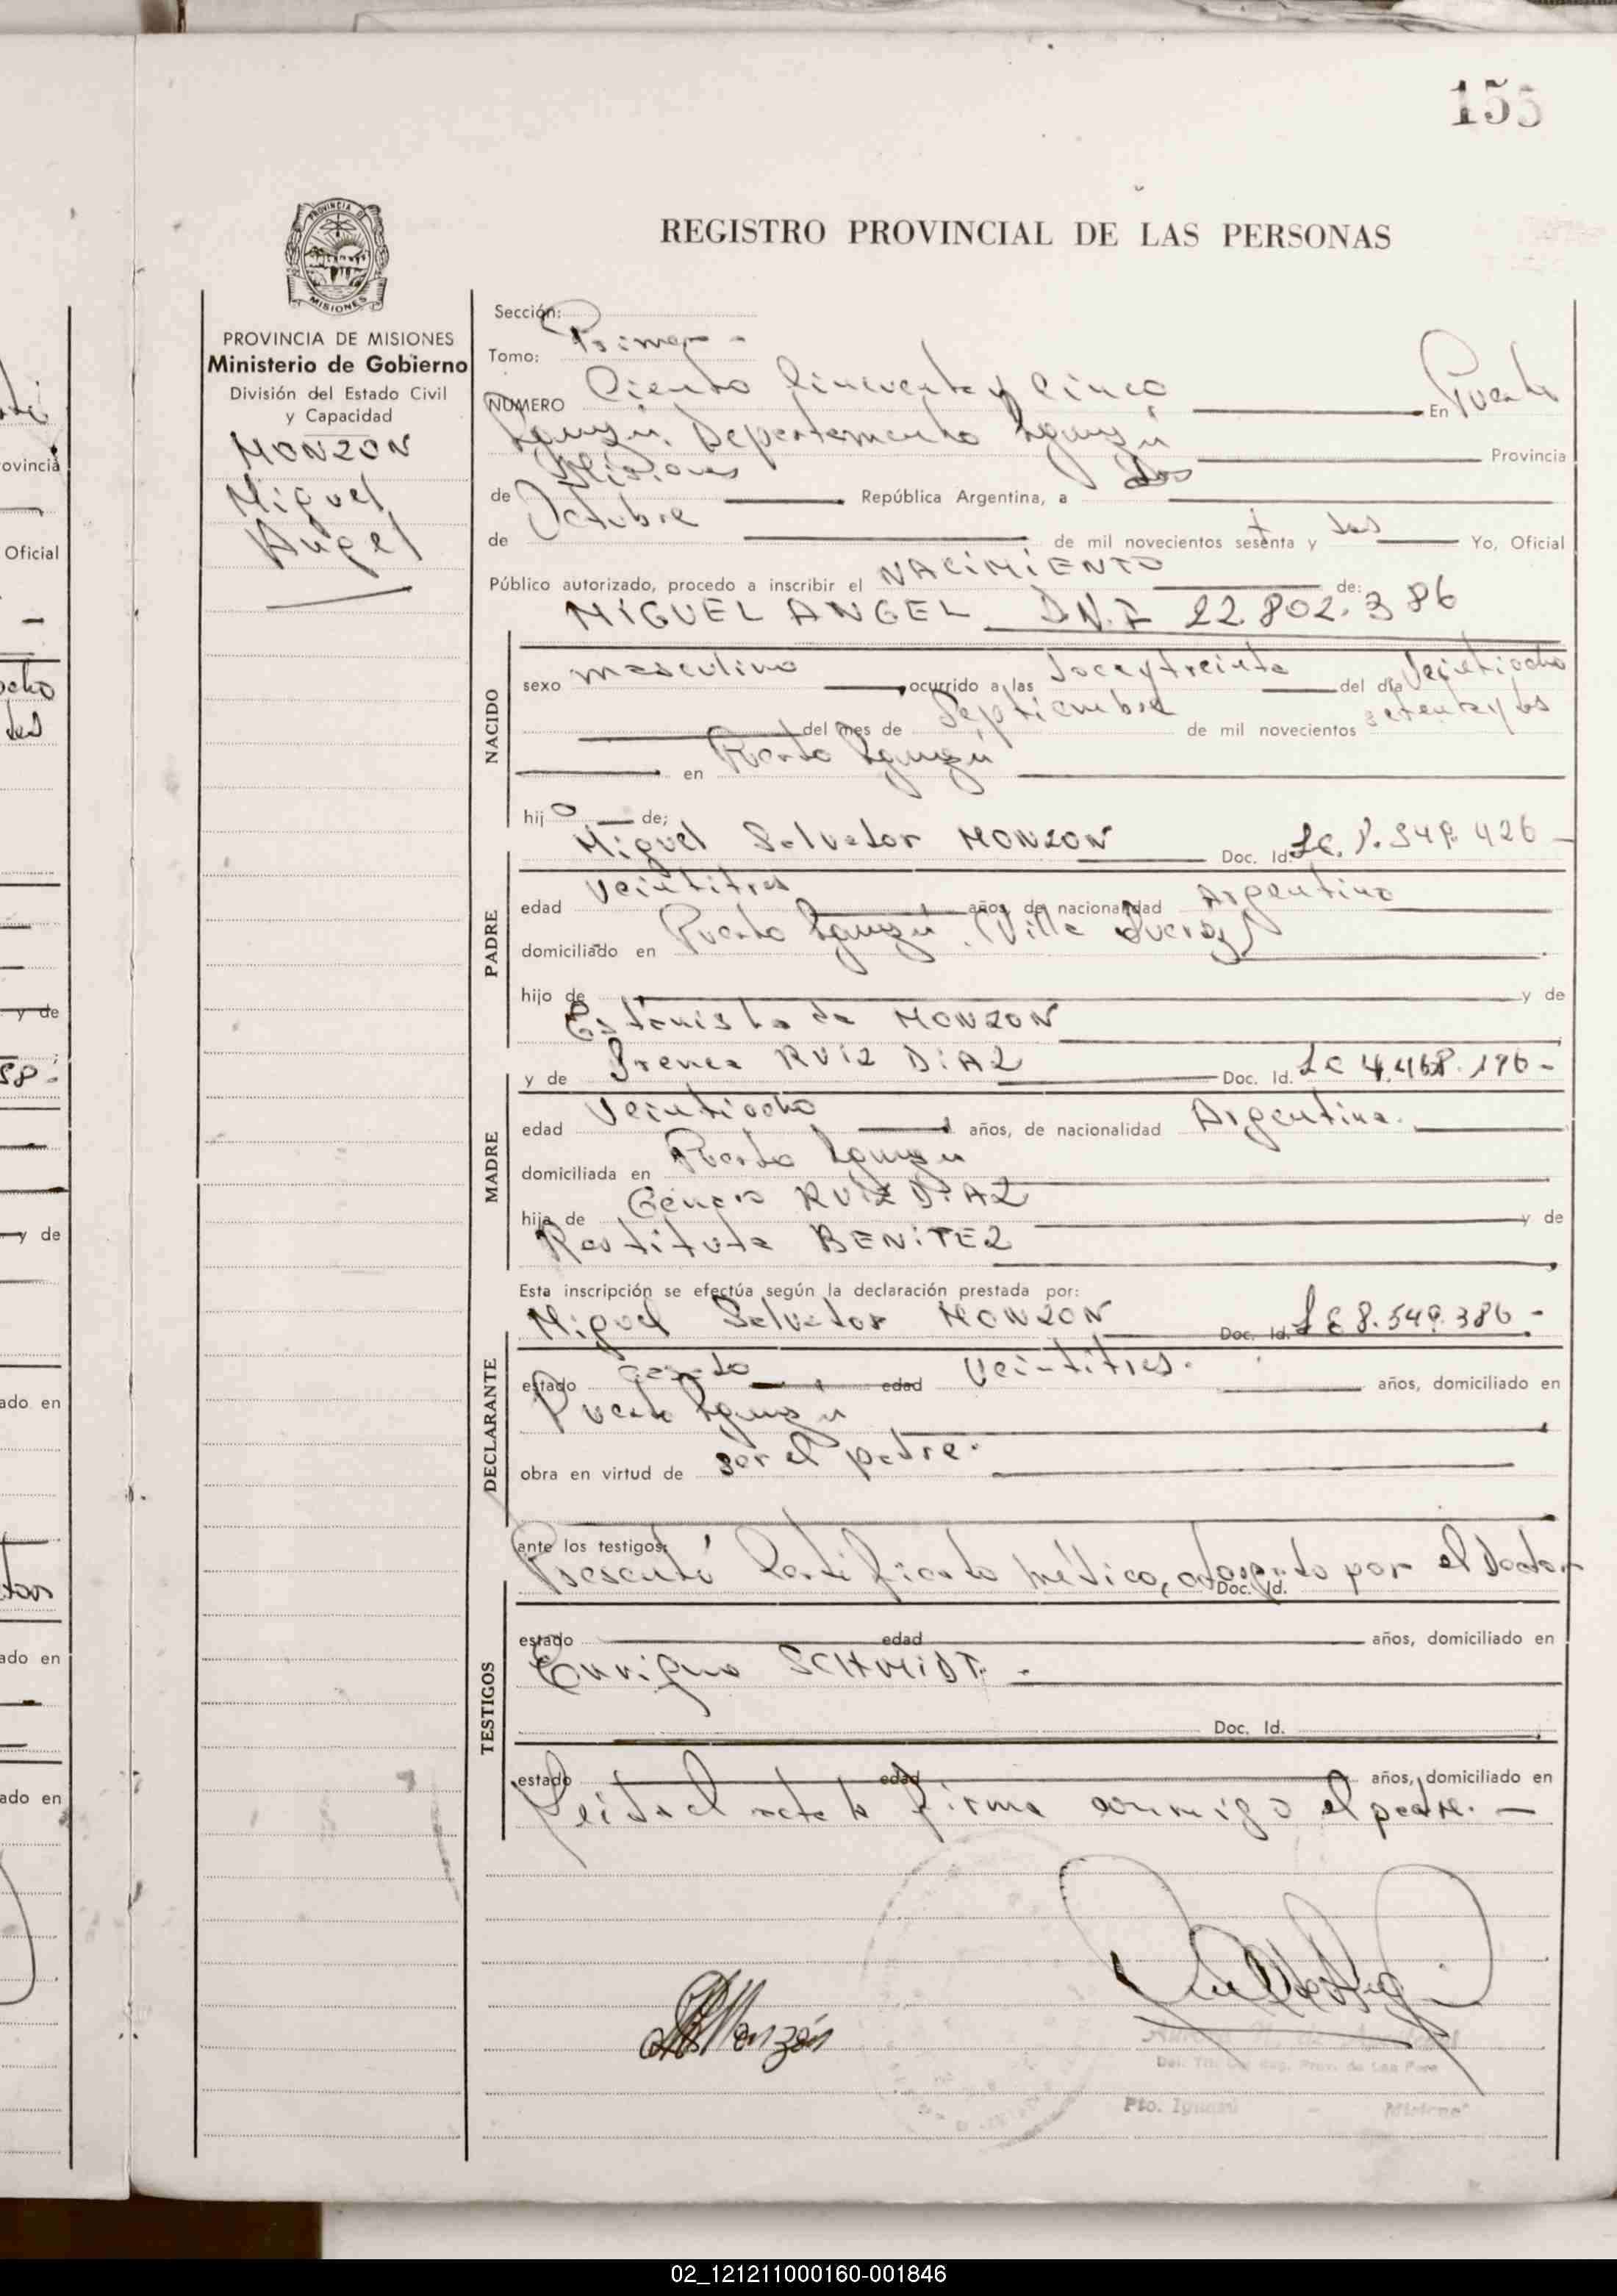 155
REGISTRO PROVINCIAL DE LAS PERSONAS
PROVINCIA DE MISIONES
Ministerio de Gobierno
División del Estado Civil
y Capacidad
MONZON
Miguel
Angel
Sección:
Tomo: Primero -
NUMERO Ciento Cincuenta y Cinco En Puerto
Iguazú, Departamento Iguazú Provincia
de Misiones República Argentina, a dos
de Octubre de mil novecientos setenta y dos Yo, Oficial
Público autorizado, procedo a inscribir el NACIMIENTO de:
MIGUEL ANGEL D.N.I 22.802.386
NACIDO
sexo masculino ocurrido a las doce y treinta del día Veintiocho
del mes de Septiembre de mil novecientos setenta y dos
en Puerto Iguazú
hij o de;
Miguel Salvador MONZON Doc. Id. 426 -
PADRE
edad Veintitres años de nacionalidad Argentina
domiciliado en Puerto Iguazú (Villa
hijo de y de
Estanislada MONZON
y de Irenea RUIZ DIAZ Doc. Id. LC 4.468.196 -
MADRE
edad Veintiocho años, de nacionalidad Argentina.
domiciliada en Puerto Iguazu
hija de RUIZ DIAZ y de
Restituta BENITEZ
Esta inscripción se efectúa según la declaración prestada por:
Miguel Salvador MONZON Doc. Id. LE 8.549.386 -
DECLARANTE
estado Casado edad Veintitres. años, domiciliado en
Puerto Iguazu
obra en virtud de ser el padre.
ante los testigos:
Presentó Certificado médico, otorgado por el Doctor
Doc. Id.
TESTIGOS
estado edad años, domiciliado en
Enrique SCHMIDT. -
Doc. Id.
estado edad años, domiciliado en
Leida el acta la firma conmigo el padre. -
Monzón
Pto. Iguazú - Misiones
02_121211000160-001846